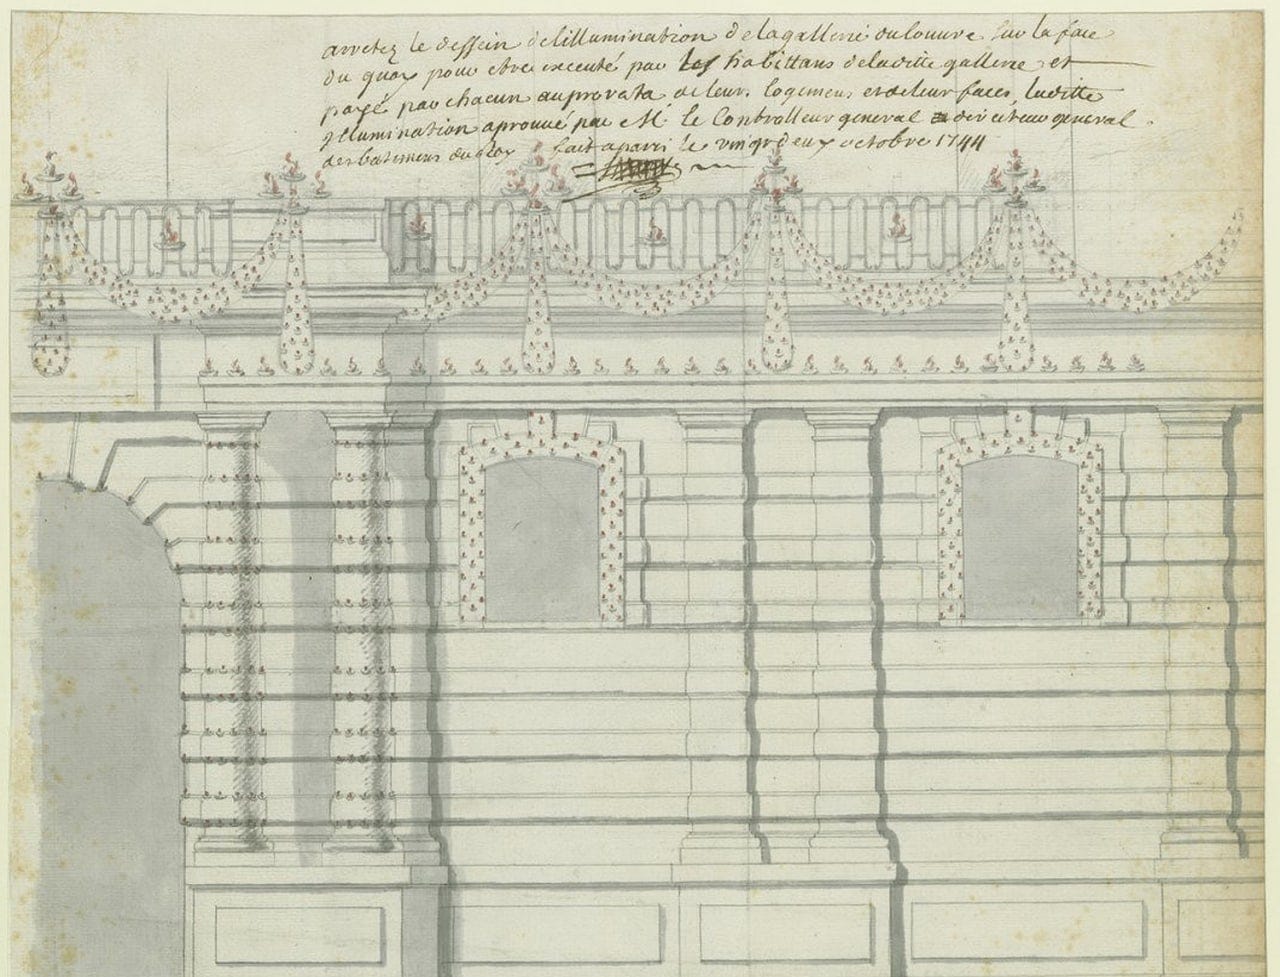 arretez le dessein de lillumination de la gallerie du louvre sur la face
du quay pour etre executé par les habittans de laditte gallerie et
payé par chacun au prorata de leurs logemens et de leur faces, laditte
Illumination aprouvé par Mr. le Controlleur general et directeur general
des batimens du Roy fait a paris le vingt deux octobre 1744